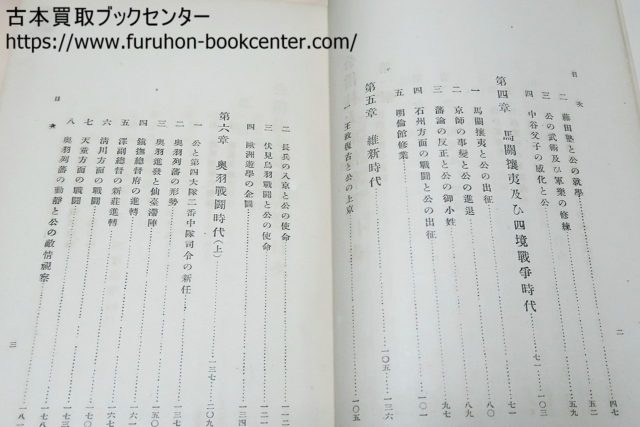 古本買取ブックセンター
https://www.furuhon-bookcenter.com/
目次
二
二 藤田塾と公の就學 四七
三 公の武術及ひ軍樂の修練 五二
四 中谷父子の感化と公 五九
第四章 馬關攘夷及ひ四境戰爭時代 七一 一〇三
一 馬關攘夷と公の出征 七一
二 京師の事變と公の進退 七九
三 藩論の反正と公の御小姓 九七
四 石州方面の戰鬪と公の出征
五 明倫館修業 一〇二
第五章 維新時代 一〇五 一三六
一 王政復古と公の上京 一〇五
二 長兵の入京と公の使命 一一二
三 伏見鳥羽戰鬪と公の使命
四 歐洲遊學の企圖 一三四
第六章 奥羽戰鬪時代(上) 一三七 二〇九
一 公と第四大隊二番中隊司令の新任
二 奥羽列藩の形勢
三 奥羽進發と仙臺滯陣
四 鎭撫總督府の進轉 一五〇
五 澤副總督の新莊進轉
六 清川方面の戰鬪 一六七
七 天童方面の戰鬪 一七八
八 奥羽列藩の動靜と公の敵情視察 一八一
目次
三